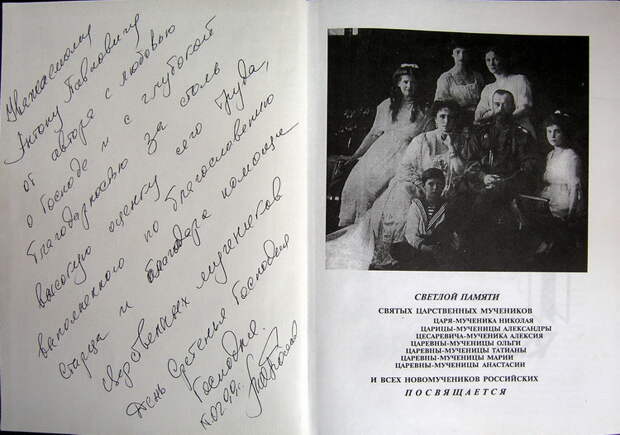 Уважаемому
Антону Павловичу
от автора с любовью
о Господе и с глубокой
благодарностью за столь
высокую оценку сего труда,
выполненного по благословению
старца и благодаря помощи
царственных мучеников
День Сретенья Господня
Господня.
СВЕТЛОЙ ПАМЯТИ
СВЯТЫХ ЦАРСТВЕННЫХ МУЧЕНИКОВ
ЦАРЯ-МУЧЕНИКА НИКОЛАЯ
ЦАРИЦЫ-МУЧЕНИЦЫ АЛЕКСАНДРЫ
ЦЕСАРЕВИЧА-МУЧЕНИКА АЛЕКСИЯ
ЦАРЕВНЫ-МУЧЕНИЦЫ ОЛЬГИ
ЦАРЕВНЫ-МУЧЕНИЦЫ ТАТИАНЫ
ЦАРЕВНЫ-МУЧЕНИЦЫ МАРИИ
ЦАРЕВНЫ-МУЧЕНИЦЫ АНАСТАСИИ
И ВСЕХ НОВОМУЧЕНИКОВ РОССИЙСКИХ
ПОСВЯЩАЕТСЯ